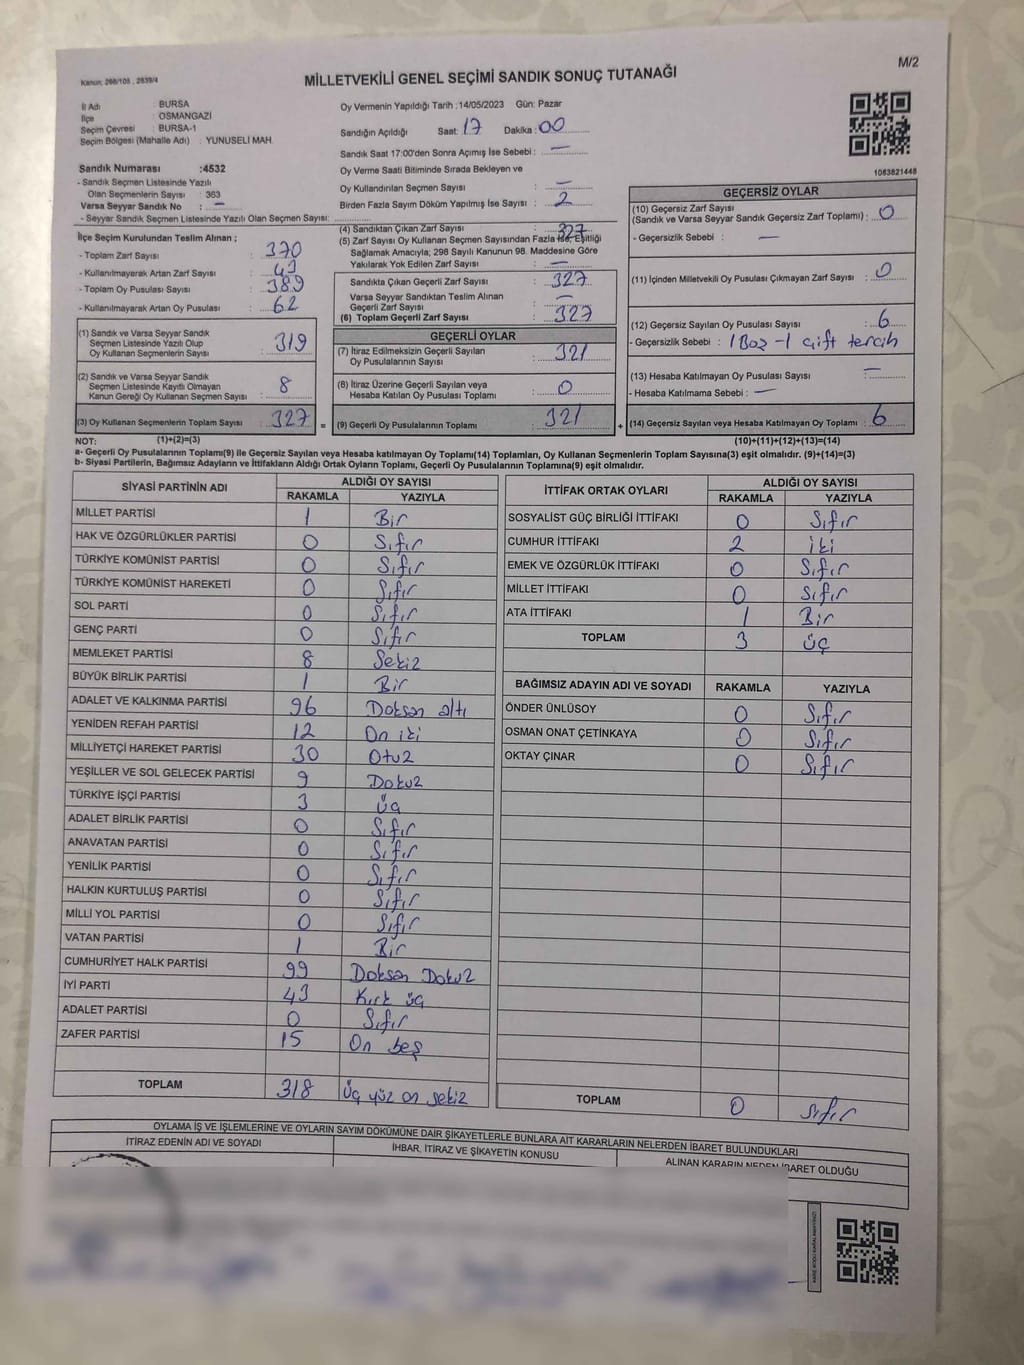 Kanun: 298/105, 2839/4
MİLLETVEKİLİ GENEL SEÇİMİ SANDIK SONUÇ TUTANAĞI
M/2
İl Adı : BURSA
İlçe : OSMANGAZİ
Seçim Çevresi : BURSA-1
Seçim Bölgesi (Mahalle Adı) : YUNUSELİ MAH.
Sandık Numarası :4532
- Sandık Seçmen Listesinde Yazılı
Olan Seçmenlerin Sayısı : 363
Varsa Seyyar Sandık No : —
- Seyyar Sandık Seçmen Listesinde Yazılı Olan Seçmen Sayısı: ..............
Oy Vermenin Yapıldığı Tarih :14/05/2023 Gün: Pazar
Sandığın Açıldığı Saat: 17 Dakika : 00
Sandık Saat 17:00'den Sonra Açımış İse Sebebi : —
Oy Verme Saati Bitiminde Sırada Bekleyen ve
Oy Kullandırılan Seçmen Sayısı : —
Birden Fazla Sayım Döküm Yapılmış İse Sayısı : 2
1083821448
İlçe Seçim Kurulundan Teslim Alınan ;
- Toplam Zarf Sayısı : 370
- Kullanılmayarak Artan Zarf Sayısı : 43
- Toplam Oy Pusulası Sayısı : 389
- Kullanılmayarak Artan Oy Pusulası : 62
(1) Sandık ve Varsa Seyyar Sandık
Seçmen Listesinde Yazılı Olup
Oy Kullanan Seçmenlerin Sayısı : 319
(2) Sandık ve Varsa Seyyar Sandık
Seçmen Listesinde Kayıtlı Olmayan
Kanun Gereği Oy Kullanan Seçmen Sayısı : 8
(3) Oy Kullanan Seçmenlerin Toplam Sayısı : 327
(4) Sandıktan Çıkan Zarf Sayısı : 327
(5) Zarf Sayısı Oy Kullanan Seçmen Sayısından Fazla İse, Eşitliği
Sağlamak Amacıyla; 298 Sayılı Kanunun 98. Maddesine Göre
Yakılarak Yok Edilen Zarf Sayısı : —
Sandıkta Çıkan Geçerli Zarf Sayısı : 327
Varsa Seyyar Sandıktan Teslim Alınan
Geçerli Zarf Sayısı : —
(6) Toplam Geçerli Zarf Sayısı : 327
GEÇERLİ OYLAR
(7) İtiraz Edilmeksizin Geçerli Sayılan
Oy Pusulasının Sayısı : 321
(8) İtiraz Üzerine Geçerli Sayılan veya
Hesaba Katılan Oy Pusulası Toplamı : 0
= (9) Geçerli Oy Pusulalarının Toplamı : 321
GEÇERSİZ OYLAR
(10) Geçersiz Zarf Sayısı
(Sandık ve Varsa Seyyar Sandık Geçersiz Zarf Toplamı) : 0
- Geçersizlik Sebebi : —
(11) İçinden Milletvekili Oy Pusulası Çıkmayan Zarf Sayısı : 0
(12) Geçersiz Sayılan Oy Pusulası Sayısı : 6
- Geçersizlik Sebebi : 1 Boz -1 çift tercih
(13) Hesaba Katılmayan Oy Pusulası Sayısı : —
- Hesaba Katılmama Sebebi : —
+ (14) Geçersiz Sayılan veya Hesaba Katılmayan Oy Toplamı : 6
NOT: (1)+(2)=(3) (10)+(11)+(12)+(13)=(14)
a- Geçerli Oy Pusulalarının Toplamı(9) ile Geçersiz Sayılan veya Hesaba Katılmayan Oy Toplamı(14) Toplamları, Oy Kullanan Seçmenlerin Toplam Sayısına(3) eşit olmalıdır. (9)+(14)=(3)
b- Siyasi Partilerin, Bağımsız Adayların ve İttifakların Aldığı Ortak Oyların Toplamı, Geçerli Oy Pusulalarının Toplamına(9) eşit olmalıdır.
SİYASİ PARTİNİN ADI ALDIĞI OY SAYISI
RAKAMLA YAZIYLA
MİLLET PARTİSİ 1 Bir
HAK VE ÖZGÜRLÜKLER PARTİSİ 0 Sıfır
TÜRKİYE KOMÜNİST PARTİSİ 0 Sıfır
TÜRKİYE KOMÜNİST HAREKETİ 0 Sıfır
SOL PARTİ 0 Sıfır
GENÇ PARTİ 0 Sıfır
MEMLEKET PARTİSİ 8 Sekiz
BÜYÜK BİRLİK PARTİSİ 1 Bir
ADALET VE KALKINMA PARTİSİ 96 Doksan altı
YENİDEN REFAH PARTİSİ 12 On iki
MİLLİYETÇİ HAREKET PARTİSİ 30 Otuz
YEŞİLLER VE SOL GELECEK PARTİSİ 9 Dokuz
TÜRKİYE İŞÇİ PARTİSİ 3 üç
ADALET BİRLİK PARTİSİ 0 Sıfır
ANAVATAN PARTİSİ 0 Sıfır
YENİLİK PARTİSİ 0 Sıfır
HALKIN KURTULUŞ PARTİSİ 0 Sıfır
MİLLİ YOL PARTİSİ 0 Sıfır
VATAN PARTİSİ 1 Bir
CUMHURİYET HALK PARTİSİ 99 Doksan Dokuz
İYİ PARTİ 43 Kırk üç
ADALET PARTİSİ 0 Sıfır
ZAFER PARTİSİ 15 On beş
TOPLAM 318 üç yüz on sekiz
İTTİFAK ORTAK OYLARI ALDIĞI OY SAYISI
RAKAMLA YAZIYLA
SOSYALİST GÜÇ BİRLİĞİ İTTİFAKI 0 Sıfır
CUMHUR İTTİFAKI 2 iki
EMEK VE ÖZGÜRLÜK İTTİFAKI 0 Sıfır
MİLLET İTTİFAKI 0 Sıfır
ATA İTTİFAKI 1 Bir
TOPLAM 3 üç
BAĞIMSIZ ADAYIN ADI VE SOYADI RAKAMLA YAZIYLA
ÖNDER ÜNLÜSOY 0 Sıfır
OSMAN ONAT ÇETİNKAYA 0 Sıfır
OKTAY ÇINAR 0 Sıfır
TOPLAM 0 sıfır
OYLAMA İŞ VE İŞLEMLERİNE VE OYLARIN SAYIM DÖKÜMÜNE DAİR ŞİKAYETLERLE BUNLARA AİT KARARLARIN NELERDEN İBARET BULUNDUKLARI
İTİRAZ EDENİN ADI VE SOYADI İHBAR, İTİRAZ VE ŞİKAYETİN KONUSU ALINAN KARARIN NEDEN İBARET OLDUĞU